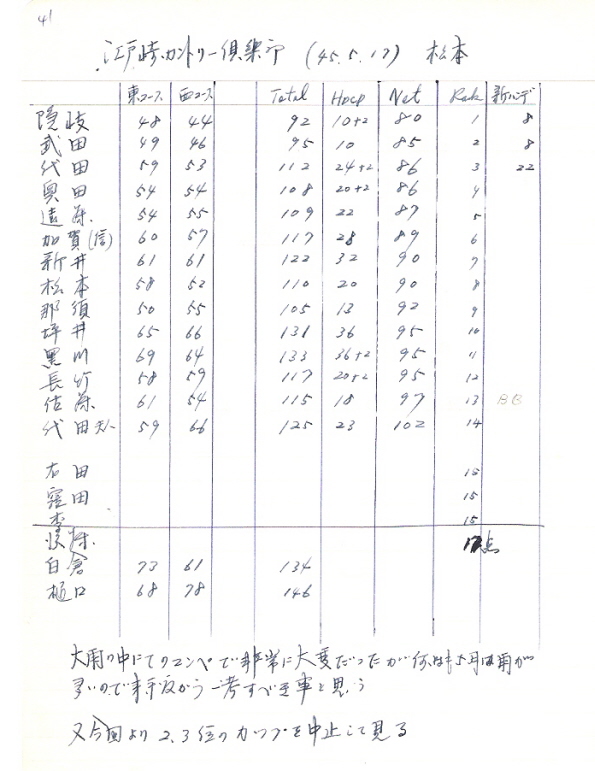 41
江戸崎カントリー倶楽部 (45.5.17) 松本
東コース 西コース Total Hdcp Net Rank 新ハンデ
隠岐 48 44 92 10+2 80 1 8
武田 49 46 95 10 85 2 8
代田 59 53 112 24+2 86 3 22
奥田 54 54 108 20+2 86 4
遠藤 54 55 109 22 87 5
加賀(信) 60 57 117 28 89 6
新井 61 61 122 32 90 7
松本 58 52 110 20 90 8
那須 50 55 105 13 92 9
坪井 65 66 131 36 95 10
黒川 69 64 133 36+2 95 11
長竹 58 59 117 20+2 95 12
佐藤 61 54 115 18 97 13 BB
代田夫人 59 66 125 23 102 14
右田 15
窪田 15
李 15
後藤 17点
白倉 73 61 134
樋口 68 78 146
大雨の中にてのコンペで非常に大変だったが何しろ5月は雨が
多いので来年度から一考すべき事と思う
又今回より2.3位のカップを中止して見る